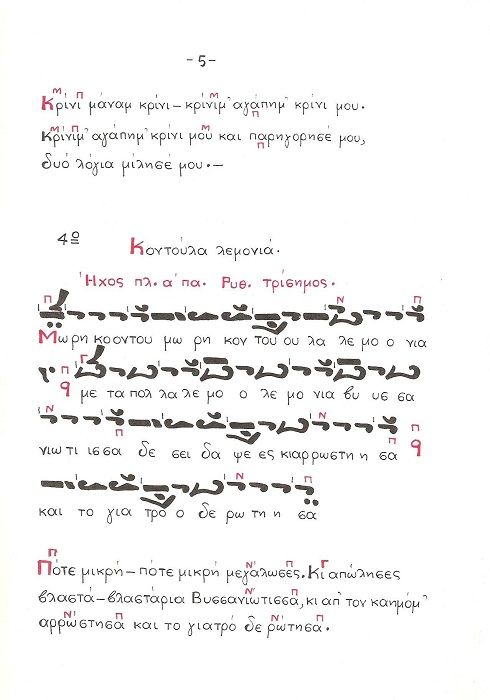 -5-
Κρίνι μάναμ κρίνι-κρίνιμ' αγάπημ' κρίνι μου.
Κρίνιμ' αγάπημ' κρίνι μου και παρηγορησέ μου,
δυό λόγια μίλησέ μου.-
4ο Κοντούλα λεμονιά.
Ήχος πλ. α' πα. Ρυθ. τρίσημος.
Μω ρη κο οντου μω ρη κον του ου λα λε μο ο νια
με τα πολ λα λε μο ο λε μο νια βυ υσ σα
νιω τι ισσα δε σει δα ψε ες κι αρρωστη η σα
και το για τρο ο δε ρω τη η σα
Πότε μικρή-πότε μικρή μεγάλωσες. Κι απώλησες
βλαστά-βλαστάρια Βυσσανιώτισσα, κι απ' τον καημόμ'
αρρώστησα και το γιατρό δε ρώτησα.